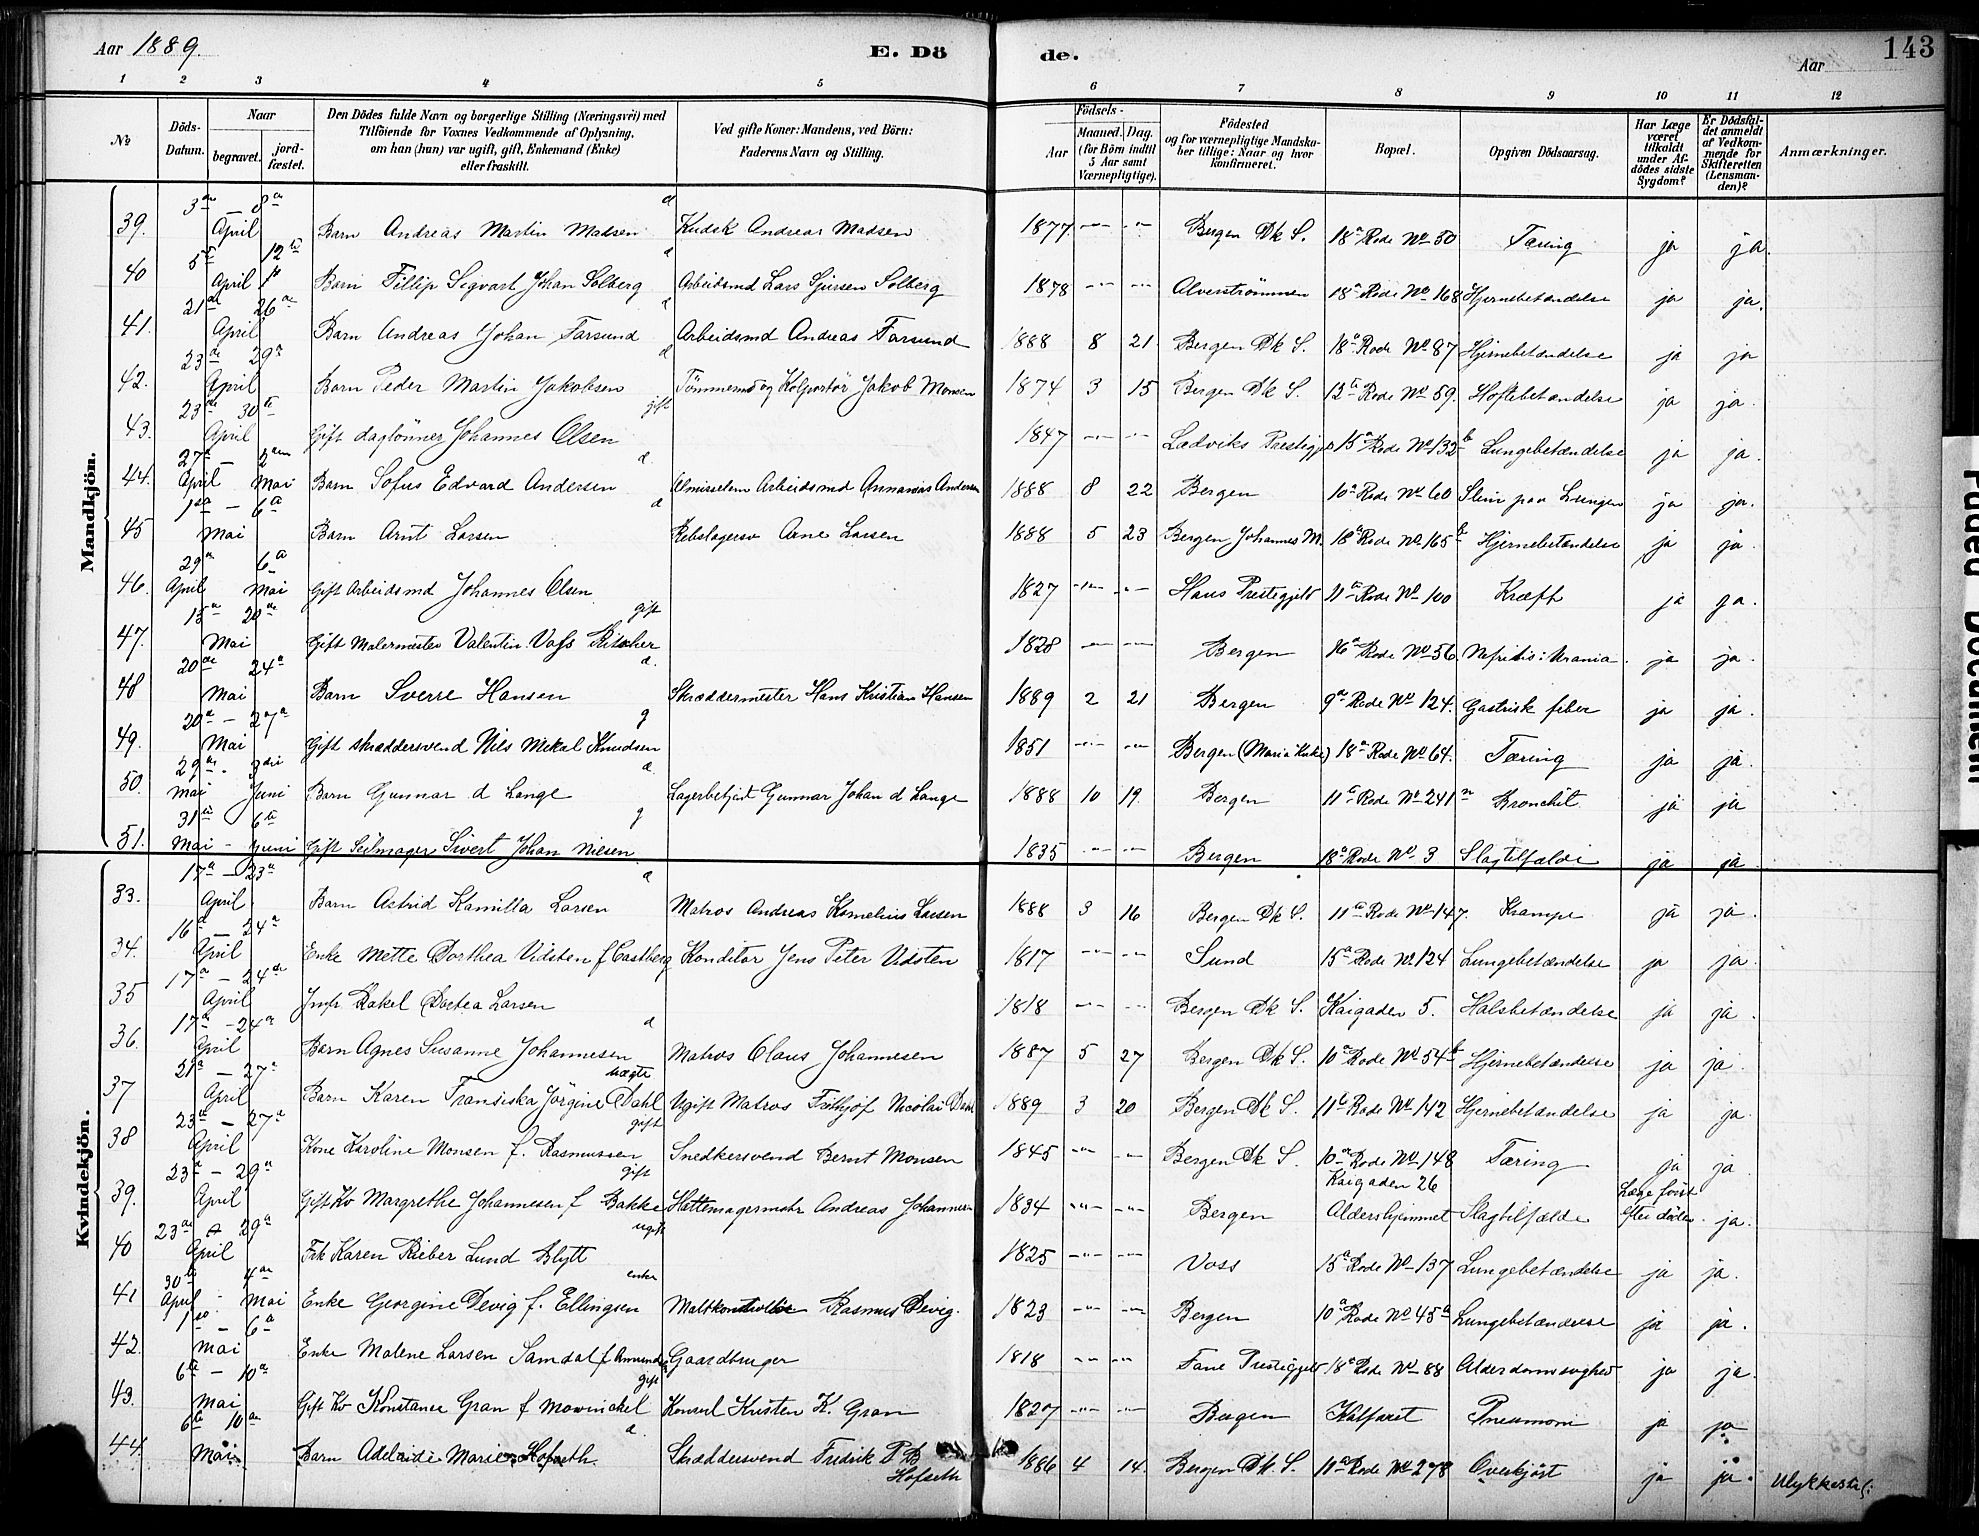 Aar 1889. E. Döde. Aar 143
1 2 3 4 5 6 7 8 9 10 11 12
No
Döds-Datum.
Naar begravet. jordfæstet.
Den Dödes fulde Navn og borgerlige Stilling (Næringsvei) med Tilföiende for Voxnes Vedkommende af Oplysning, om han (hun) var ugift, gift, Enkemand (Enke) eller fraskilt.
Ved gifte Koner: Mandens, ved Börn: Faderens Navn og Stilling.
Födsels-
Aar Maaned. Dag. (for Börn indtil 5 Aar samt Værnepligtige).
Födested og for værnepligtige Mandskaber tillige: Naar og hvor konfirmeret.
Bopæl.
Opgiven Dödsaarsag.
Har Læge været tilkaldt under Afdödes sidste Sygdom?
Er Dödsfaldet anmeldt af Vedkommende for Skifteretten (Lensmanden)?
Anmærkninger.
Mandkjön.
39. 3die – 8de April Barn Andreas Martin Madsen Kudsk Andreas Madsen 1877 – – Bergen Dk S. 18de Rode No 50 Tæring ja ja.
40 5te 12te April Barn Fillip Sigvart Johan Solberg Arbeidsmd Lars Sjursen Solberg 1878 – – Alverströmmen 18de Rode No 168 Hjernebetændelse ja ja.
41. 21de 26de April Barn Andreas Johan Farsund Arbeidsmd Andreas Farsund 1888 8 21. Bergen Dk S. 18de Rode No 87 Hjernebetændelse ja ja
42. 23de 29de April Barn Peder Martin Jakobsen Tömmermd og Kolportör Jakob Monsen 1874 3 15 Bergen Dk S. 12te Rode No 59. Hoftebetændelse ja ja.
43. 23de 30te April Gift daglönner Johannes Olsen gift 1847 – – Ladviks Prestegjeld 15de Rode No 132b Lungebetændelse ja ja.
44. 27de April – 2den Mai Barn Sofus Edvard Andersen Almisselem Arbeidsmd Annanias Andersen 1888 8 22 Bergen 10de Rode No 60 Slim paa Lungen ja ja.
45 1ste – 6te Mai Barn Arnt Larsen Rebslagersv Arne Larsen 1888 5 23 Bergen Johannes M. 18de Rode No 165b Hjernebetændelse ja ja.
46. 29de April 6te Mai Gift Arbeidsmd Johannes Olsen 1827 – – Haus Prestegjeld 11te Rode No 100 Kræft ja ja.
47. 15de 20de Mai Gift Malermester Valentin Voss gift 1828 – – Bergen 16de Rode No 56. Nefritis: Urania ja ja.
48 20de 24de Mai Barn Sverre Hansen Skræddermester Hans Kristian Hansen 1889 2 21 Bergen 9de Rode No 124. Gastrisk feber ja ja.
49. 20de – 27de Mai Gift skræddersvend Nils Mekal Knudsen g 1851 – – Bergen (Maria Kirke) 18de Rode No 64. Tæring ja ja.
50. 29de Mai 3die Juni Barn Gunnar d Lange Lagerbetjent Gunnar Johan d Lange 1888 10 19. Bergen 11te Rode No 241 Bronchit ja ja
51. 31te Mai – 6te Juni Gift Seilmager Sivert Johan Nilsen g 1835 – – Bergen 18de Rode No 3 Slagtilfælde ja ja
Kvindekjön.
33. 17de – 23de April Barn Astrid Kamilla Larsen Matros Andreas Kornelius Larsen 1888 3 16 Bergen Dk S. 11te Rode No 147. Krampe ja ja.
34. 16de – 24de April Enke Mette Dorthea Vidsten f Castberg Konditor Jens Peter Vidsten 1817 – – Sund 15de Rode No 124 Lungebetændelse ja ja.
35 17de – 24de April Jmfr Rakel Dortea Larsen 1818 – – Bergen Dk S. Kaigaden 5. Halsbetændelse ja ja.
36. 17de – 24de April Barn Agnes Susanne Johannesen Matros Olaus Johannesen 1887 5 27 Bergen Dk S. 10de Rode No 54b Hjernebetændelse ja ja.
37 21de – 27de April Barn Karen Fransiska Jörgine Dahl uægte Ugift Matros Frithjof Nicolai Dahl 1889 3 20 Bergen Dk S. 11te Rode No 142 Hjernebetændelse ja ja.
38 23de – 27de April Kone Karoline Monsen f. Rasmussen gift Snedkersvend Bernt Monsen 1845 – – Bergen Dk S. 10de Rode No 148 Tæring ja ja.
39. 23de – 29de April Gift Kv Margrethe Johannesen f Bakke gift Hattemagermstr Andreas Johannesen 1834 – – Bergen Kaigaden 26 Aldershjemmet Slagtilfælde Læge först efter döden. ja.
40 23de 29de April Frk Karen Rieber Lund Blytt ugift 1825 – – Voss 15de Rode No 137 Lungebetændelse ja ja.
41 30te April – 4de Mai Enke Georgine Devig f. Ellingsen enke Maltkontrollör Rasmus Devig. 1823 – – Bergen 10de Rode No 45a Lungebetændelse ja ja.
42. 1ste – 6te Mai Enke Malene Larsen Samdal f Amunds Gaardbruger 1818 – – Fane Prestegjeld 18de Rode No 88 Alderdomsvaghed ja ja.
43. 6te – 10de Mai Gift Kv Konstance Gran f Mowinckel gift Konsul Kristen K. Gran 1827 – – Bergen Kalfaret Pneumoni ja ja
44. 6te 10de Mai Barn Adelaide Marie Hofseth Skræddersvend Fredrik P B Hofseth 1886 4 14. Bergen Dk. S. 11te Rode No 278 Overkjört ja ja. Ulykkestilf: